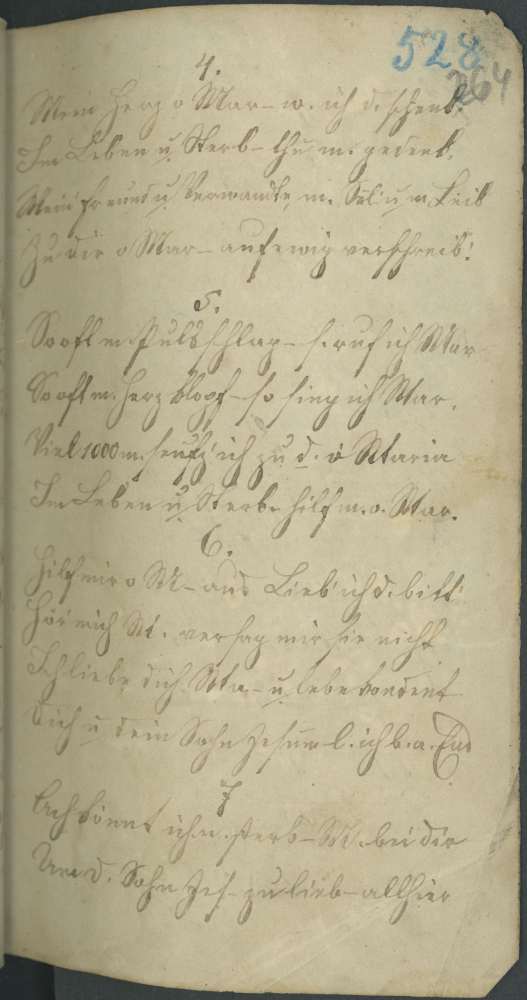 528
264
4.
Mein Herz o Mar- w. ich d. schenk.
Im Leben u Sterb- thu m. gedenk.
Mein Freund u Verwandte, m. Sel u m. Leib
Zu dir o Mar- auf ewig verschreib!
5.
So oft m. Pulsschlag- s. ruf ich Mar
So oft m. Herz klopf- so sing ich Mar.
Viel 1000 m. seufz ich zu d. o Maria
Im Leben u Sterb. hilf m. o. Mar.
6.
Hilf mir o M- aus Lieb ich d. bitt
Hör mich M. versag mir sie nicht
Ich liebe dich Ma- u lebe
Dich u dein Sohn Jesum l. ich b. a. End
7
Ach könnt ich n. sterb- M. bei dir
Um d. Sohn Jes- zu lieb- allhier